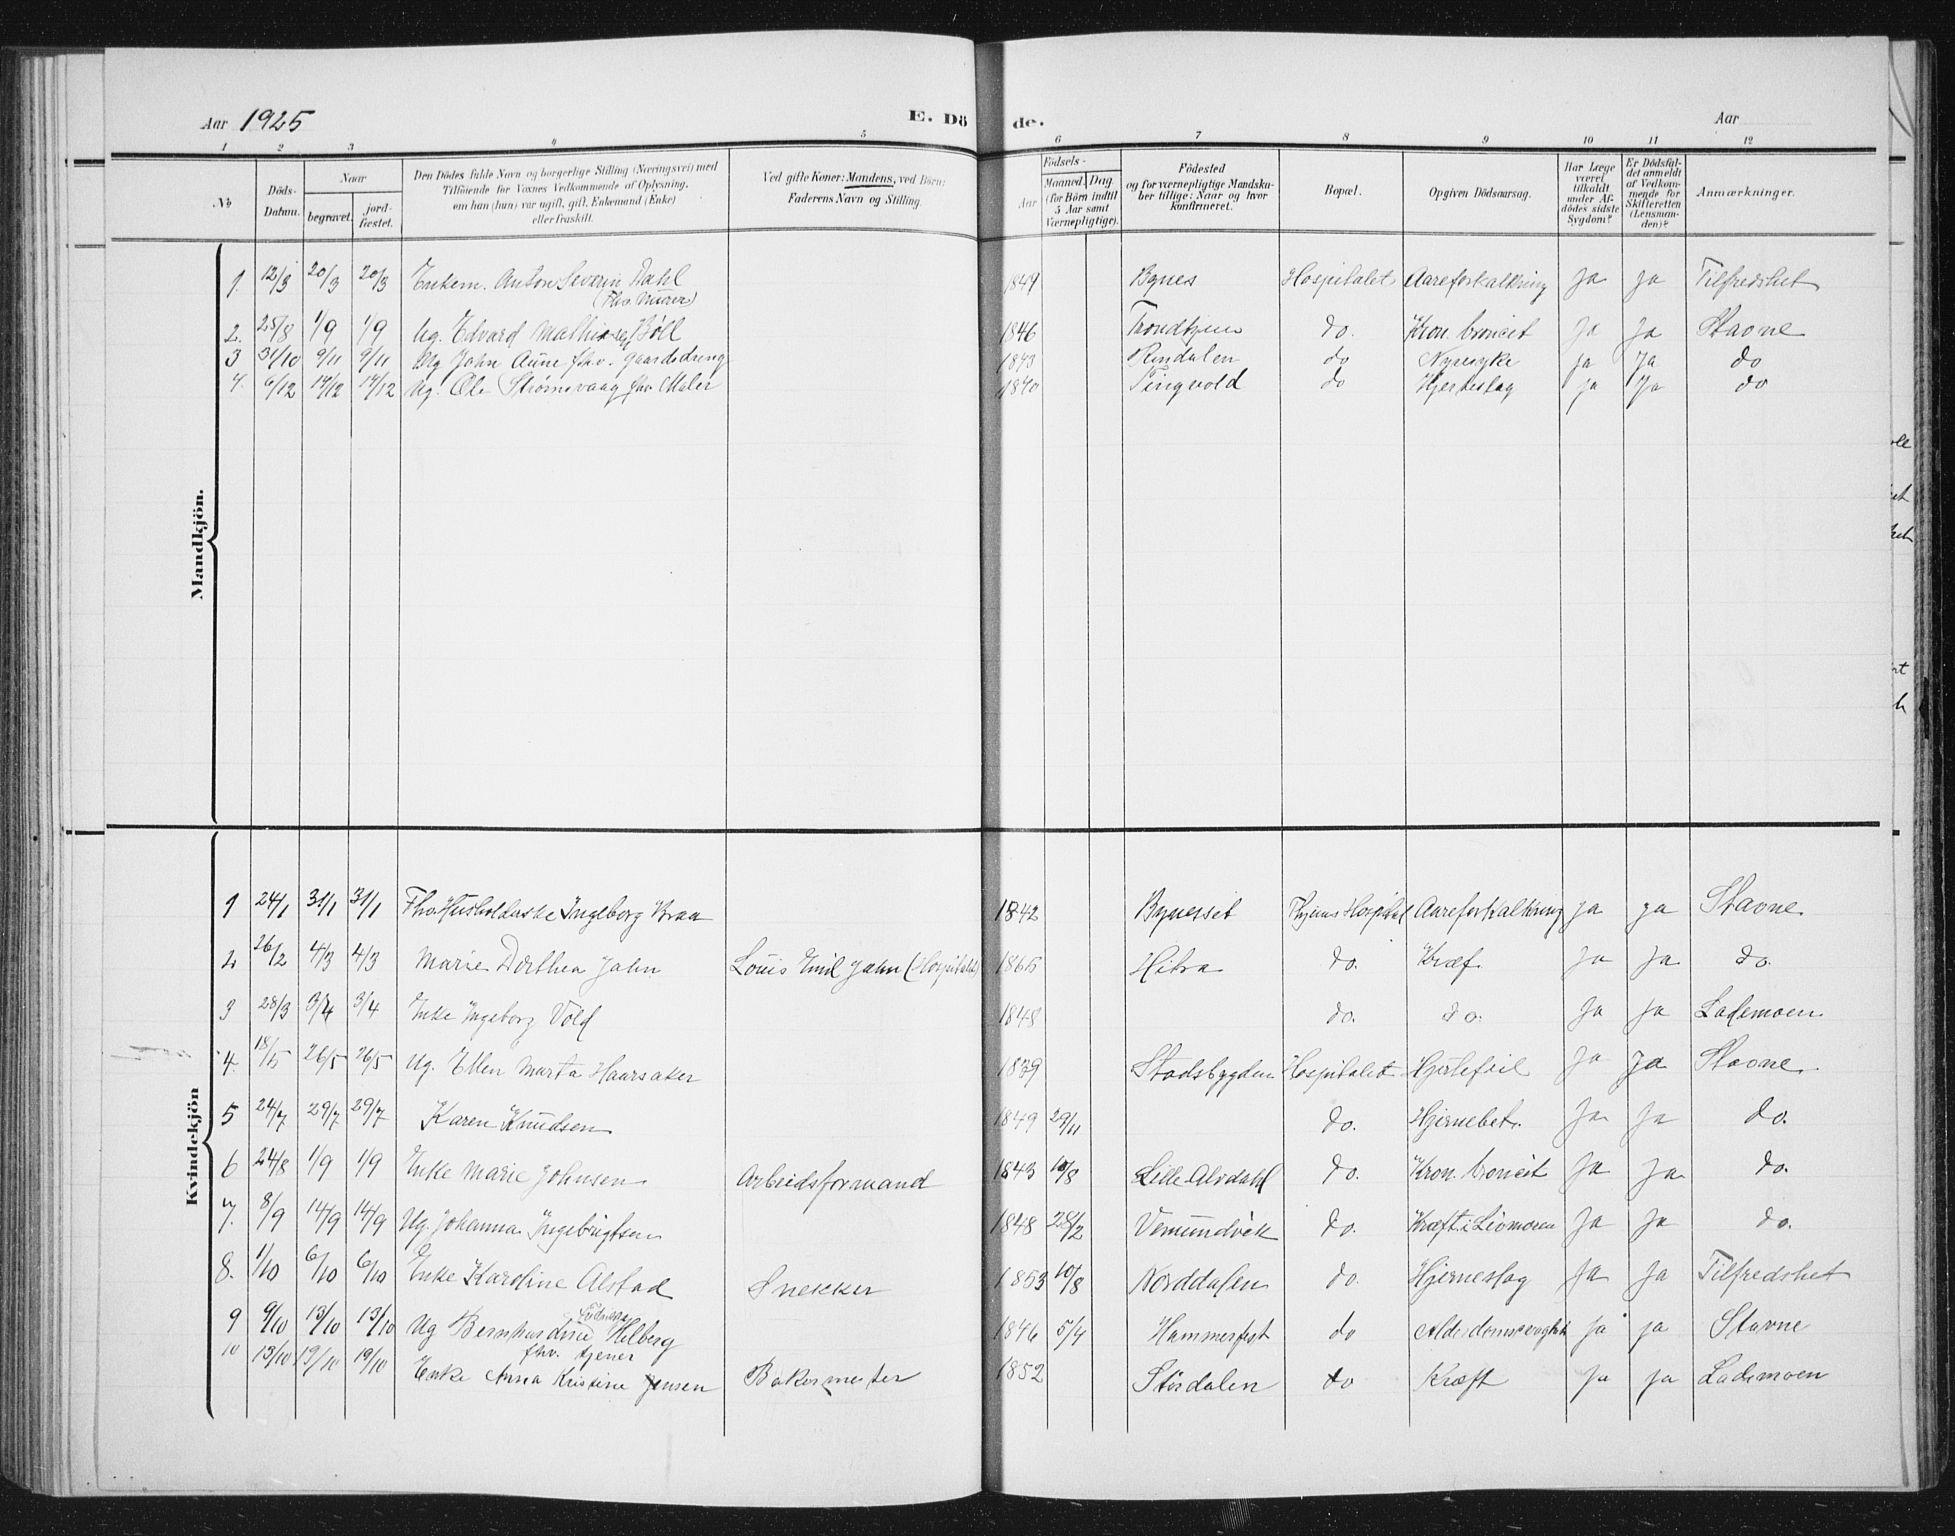 Aar 1925 E. Dö de. Aar
1 2 3 4 5 6 7 8 9 10 11 12
No
Döds-Datum.
Naar
begravet.
jordfæstet.
Den Dödes fulde Navn og borgerlige Stilling (Næringsvei) med
Tilföiende for Voxnes Vedkommende af Oplysning,
om han (hun) var ugift, gift, Enkemand (Enke)
eller fraskilt.
Ved gifte Koner: Mandens, ved Börn:
Faderens Navn og Stilling.
Födsels-
Aar
Maaned. Dag.
(for Börn indtil
5 Aar samt
Værnepligtige).
Födested
og for værnepligtige Mandska-
ber tillige: Naar og hvor
konfirmeret.
Bopæl.
Opgiven Dödsaarsag.
Har Læge
været
tilkaldt
under Af-
dödes sidste
Sygdom?
Er Dödsfal-
det anmeldt
af Vedkom-
mende for
Skifteretten
(Lensman-
den)?
Anmærkninger.
Mandkjön.
1 12/3 20/3 20/3 Enkem. Anton Severin Dahl 1849 Bynes Hospitalet Aareforkalkning Ja Ja Tilfredshet
(Fhv. Murer)
2. 25/8 1/9 1/9 Ug. Edvard Mathias Böll 1846 Trondhjem do. Kron. broncit Ja Ja Stavne
3 31/10 9/11 9/11 Ug John Aune fhv. gaardsdreng 1843 Rindalen do Nyresyke Ja Ja do
4. 6/12 14/12 14/12 Ug. Ole Strømsvaag fhv Maler 1840 Tingvold do Hjerteslag Ja Ja do
Kvindekjön
1 24/1 31/1 31/1 Fhv. Husholderske Ingeborg Braa 1842 Bynesset Thjems Hospital Aareforkalkning Ja Ja Stavne
2 26/2 4/3 4/3 Marie Dorthea Jahn Louis Emil Jahn (Hospitalet) 1865 Hitra do. Kræf. Ja Ja do.
3 28/3 3/4 3/4 Enke Ingeborg Vold 1848 do. do. Ja Ja Lademoen
4 18/5 26/5 26/5 Ug. Ellen Marta Haarsaker 1839 Stadsbygden Hospitalet Hjertefeil Ja Ja Stavne.
5 24/7 29/7 29/7 Karen Knudsen 1849 29/11 do. Hjernebet. Ja Ja do.
6 24/8 1/9 1/9 Enke Marie Johnsen Arbeidsformand 1843 10/8 Lille Alvdahl do. Kron. broncit Ja Ja do.
7. 8/9 14/9 14/9 Ug. Johanna Ingebrigtsen 1848 28/2 Vemundvik do. Kræft i Livmoren Ja Ja do.
8. 1/10 6/10 6/10 Enke Karoline Alstad Snekker 1853 10/8 Norddalen do. Hjerneslag Ja Ja Tilfredshet
9 9/10 13/10 13/10 Ug Bernhardine Hilberg 1846 5/4 Hammerfest do Alderdomssvaghet Ja Ja Stavne
fhv. tjener
10 13/10 19/10 19/10 Enke Anna Kristine Jensen Bakermester 1852 Stördalen do Kræft Ja Ja Lademoen